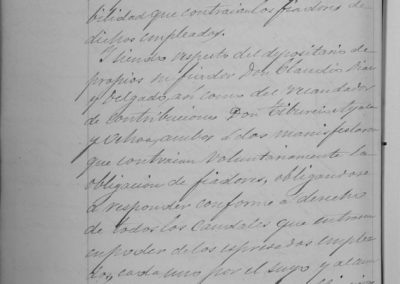 bilidad que contraian los fiadores de
dichos empleados.
I siendo respecto del depositario de
propios su fiador Don Claudio Diaz
y Delgado, así como del recaudador
de contribuciones Don Tiburcio Ayala
y Ochoa, ambos Sres manifestaron
que contraian voluntariamente la
obligacion de fiadores, obligandose
a responder conforme a derecho
de todos los Caudales que entraren
en poder de los espresados emplea
dos, cada uno por el suyo y al